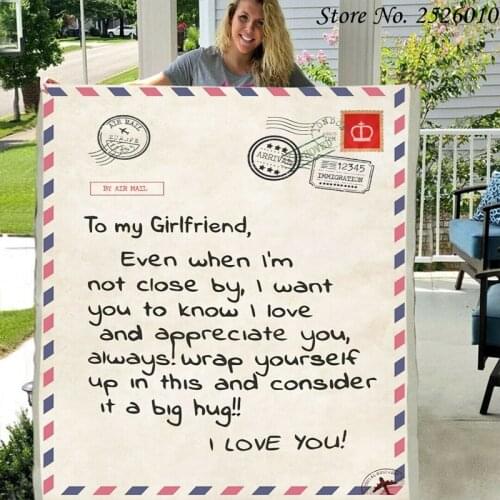 Store No. 2526010
AIR MAIL
LONDON
ARRIVAL
12345
IMMIGRATION
BY AIR MAIL
To my Girlfriend,
Even when i'm
not close by, I want
you to know I love
and appreciate you,
always! wrap yourself
up in this and consider
it a big hug!!
I LOVE YOU!